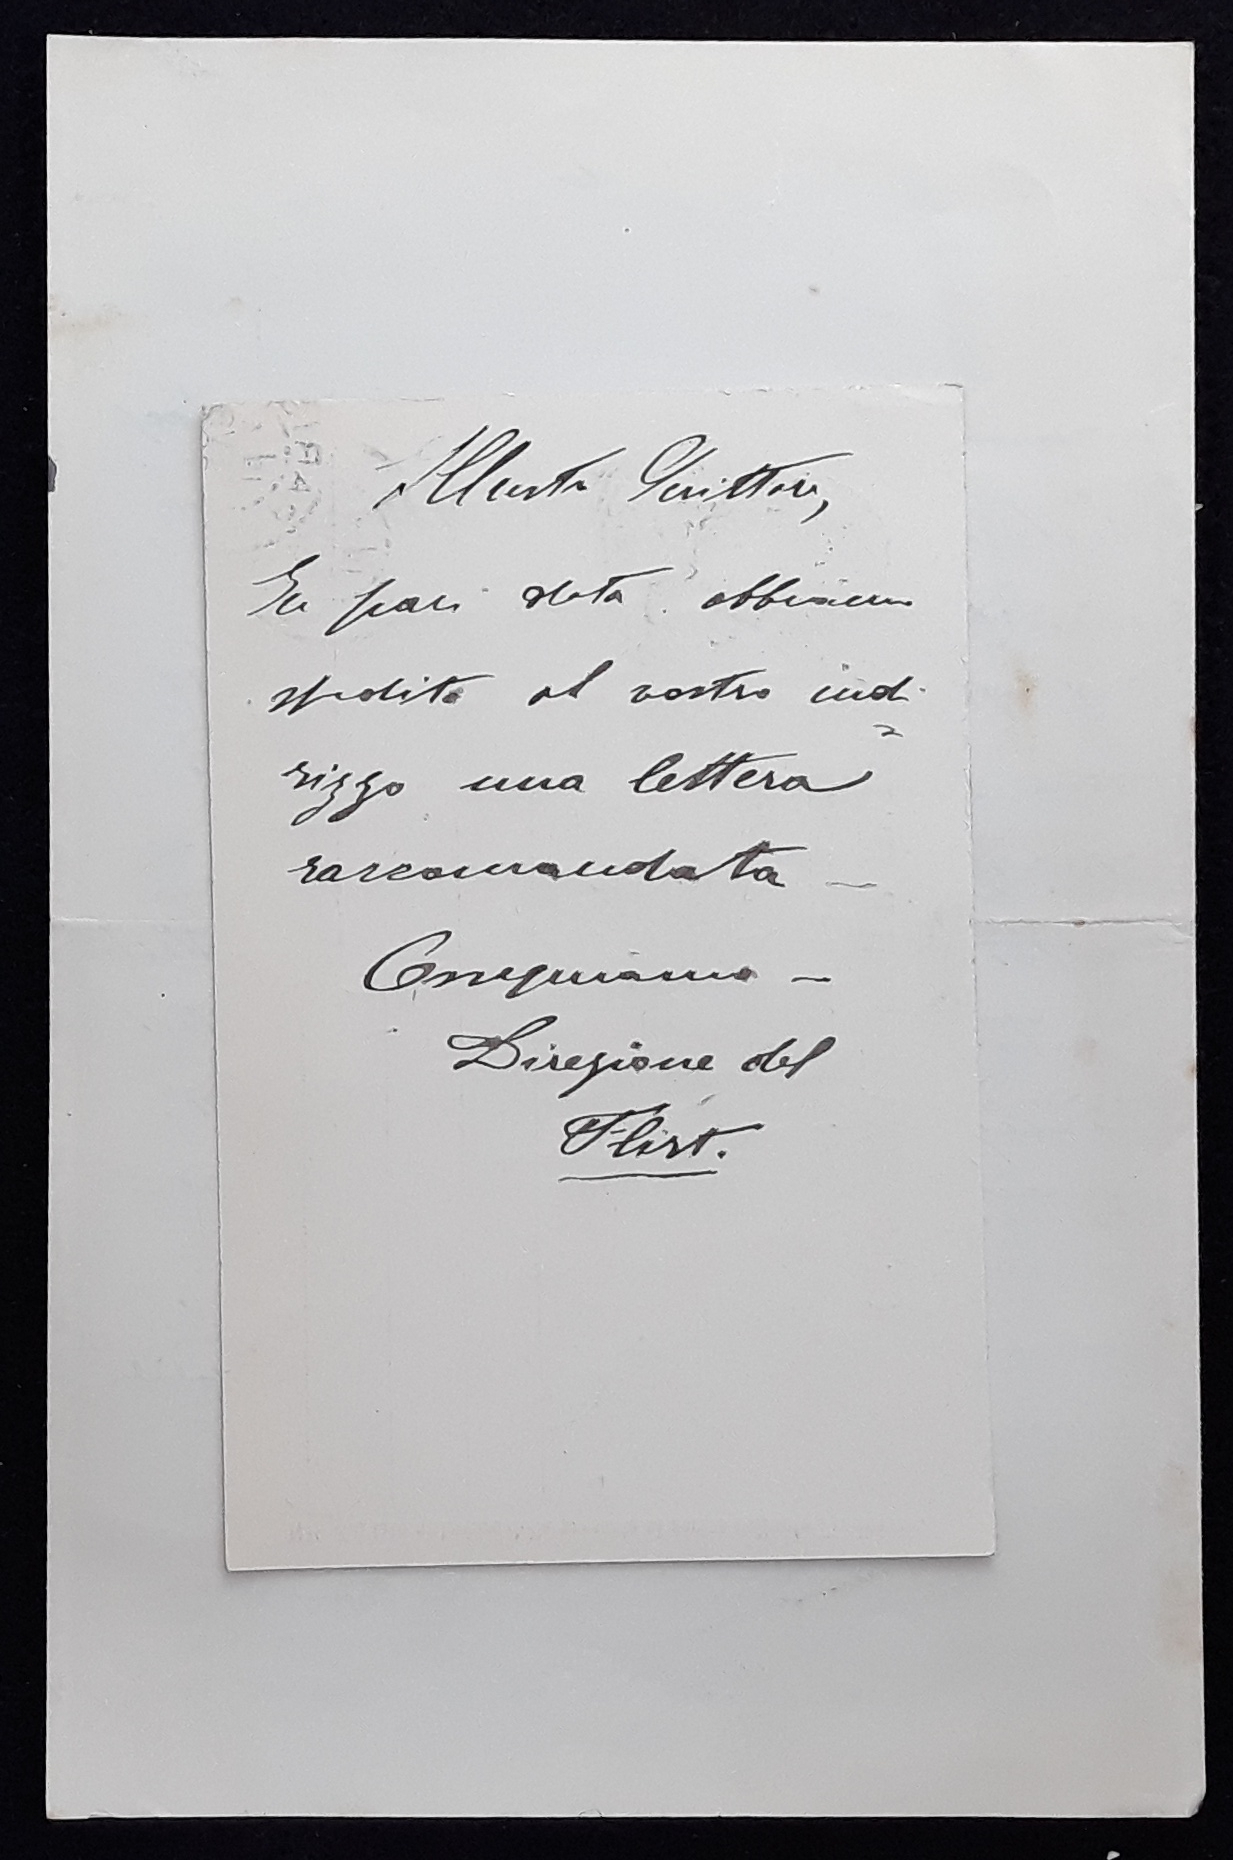 Illustre Scrittore,
In pari data abbiamo
spedito al vostro indi-
rizzo una lettera
raccomandata —
Ossequiamo —
Direzione del
Flirt.